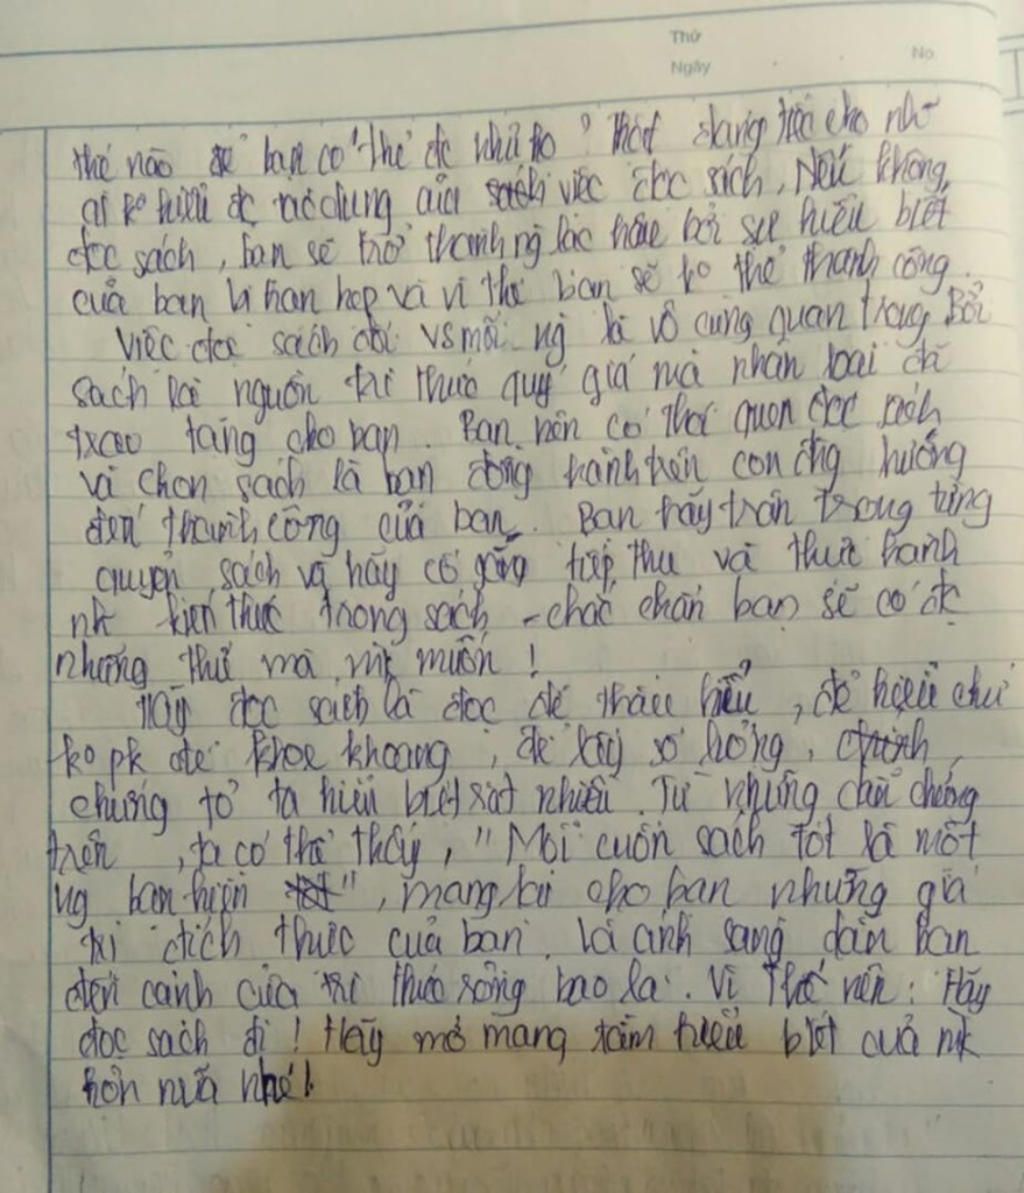 Thứ
Ngày
No
thế nào để bạn có thể đc như họ? Thật đáng trách cho nh~
ai ko hiểu đc tác dụng của việc đọc sách. Nếu không
đọc sách, bạn sẽ trở thành ng lạc hậu bởi sự hiểu biết
của bạn bị hạn hẹp và vì thế bạn sẽ ko thể thành công.
Việc đọc sách đối vs mỗi ng là vô cùng quan trọng. Bởi
sách là nguồn tri thức quý giá mà nhân loại đã
trao tặng cho bạn. Bạn nên có thói quen đọc sách
và chọn sách là bạn đồng hành trên con đg hướng
đến thành công của bạn. Bạn hãy trân trọng từng
quyển sách và hãy cố gắng tiếp thu và thực hành
nh kiến thức trong sách - chắc chắn bạn sẽ có đc
những thứ mà mk muốn!
Hãy đọc sách là đọc để thấu hiểu, để hiểu chứ
ko pk để khoe khoang, để lấy số lượng,
chứng tỏ ta hiểu biết rất nhiều. Từ những dẫn chứng
trên, ta có thể thấy, "Mỗi cuốn sách tốt là một
ng bạn hiền", mang lại cho bạn những giá
trị đích thực của bạn. Là ánh sáng dẫn bạn
đến cánh cửa tri thức rộng bao la. Vì thế nên: Hãy
đọc sách đi! Hãy mở mang tầm hiểu biết của mk
hơn nữa nhé!